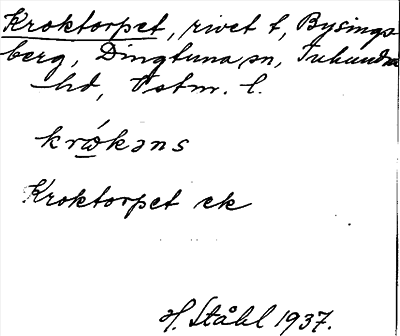 Kroktorpet, rivet t, Bysings
berg, Dingtuna sn, Tuhundra
hd, Västm. l.
krώ̨kəns
Kroktorpet ek
H. Ståhl 1937.